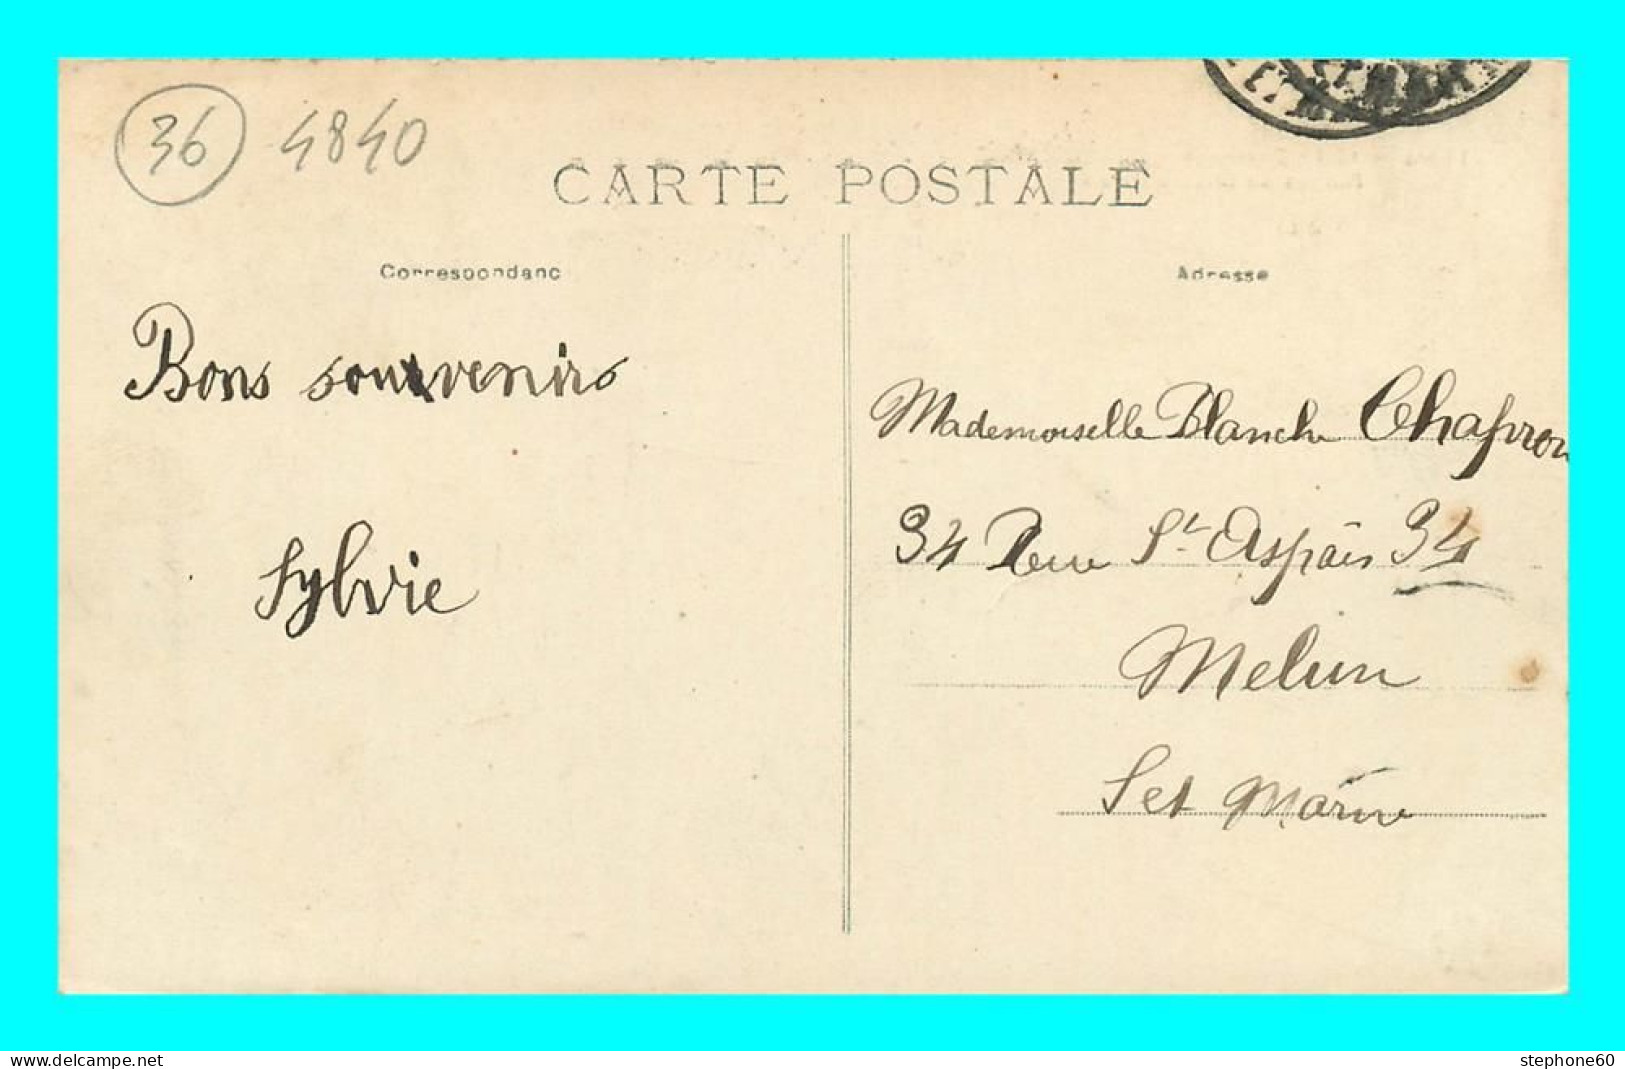 36 4840
CARTE POSTALE
Correspondanc
Adresse
Bons souvenirs
Sylvie
Mademoiselle Blanche Chapron
34 Rue St Aspais 34
Melun
S et Marne
www.delcampe.net
stephone60